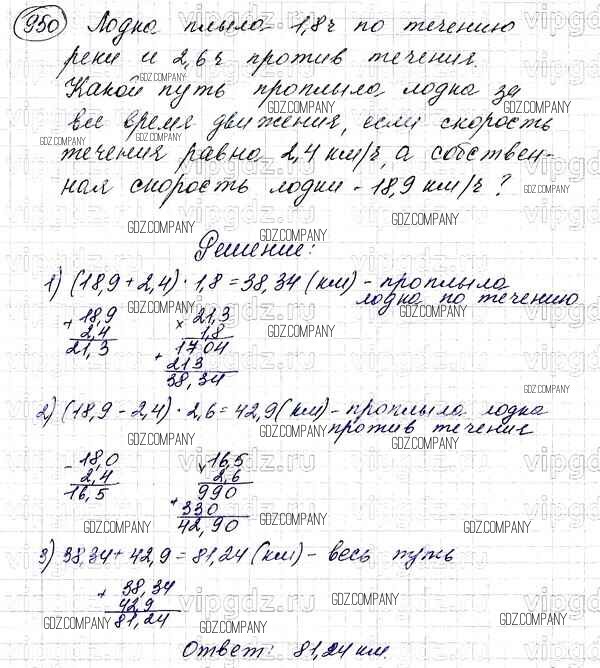 950 Лодка плыла 1,8 ч по течению
реки и 2,6 ч против течения.
Какой путь проплыла лодка за
все время движения, если скорость
течения равна 2,4 км/ч, а собствен-
ная скорость лодки - 18,9 км/ч?
Решение:
1) (18,9 + 2,4) · 1,8 = 38,34 (км) - проплыла
лодка по течению
+ 18,9 × 21,3
2,4 1,8
21,3 1704
+ 213
38,34
2) (18,9 - 2,4) · 2,6 = 42,9 (км) - проплыла лодка
против течения
- 18,0 × 16,5
2,4 2,6
16,5 990
+ 330
42,90
3) 38,34 + 42,9 = 81,24 (км) - весь путь
+ 38,34
42,9
81,24
Ответ: 81,24 км.
GDZ.COMPANY
vipgdz.ru